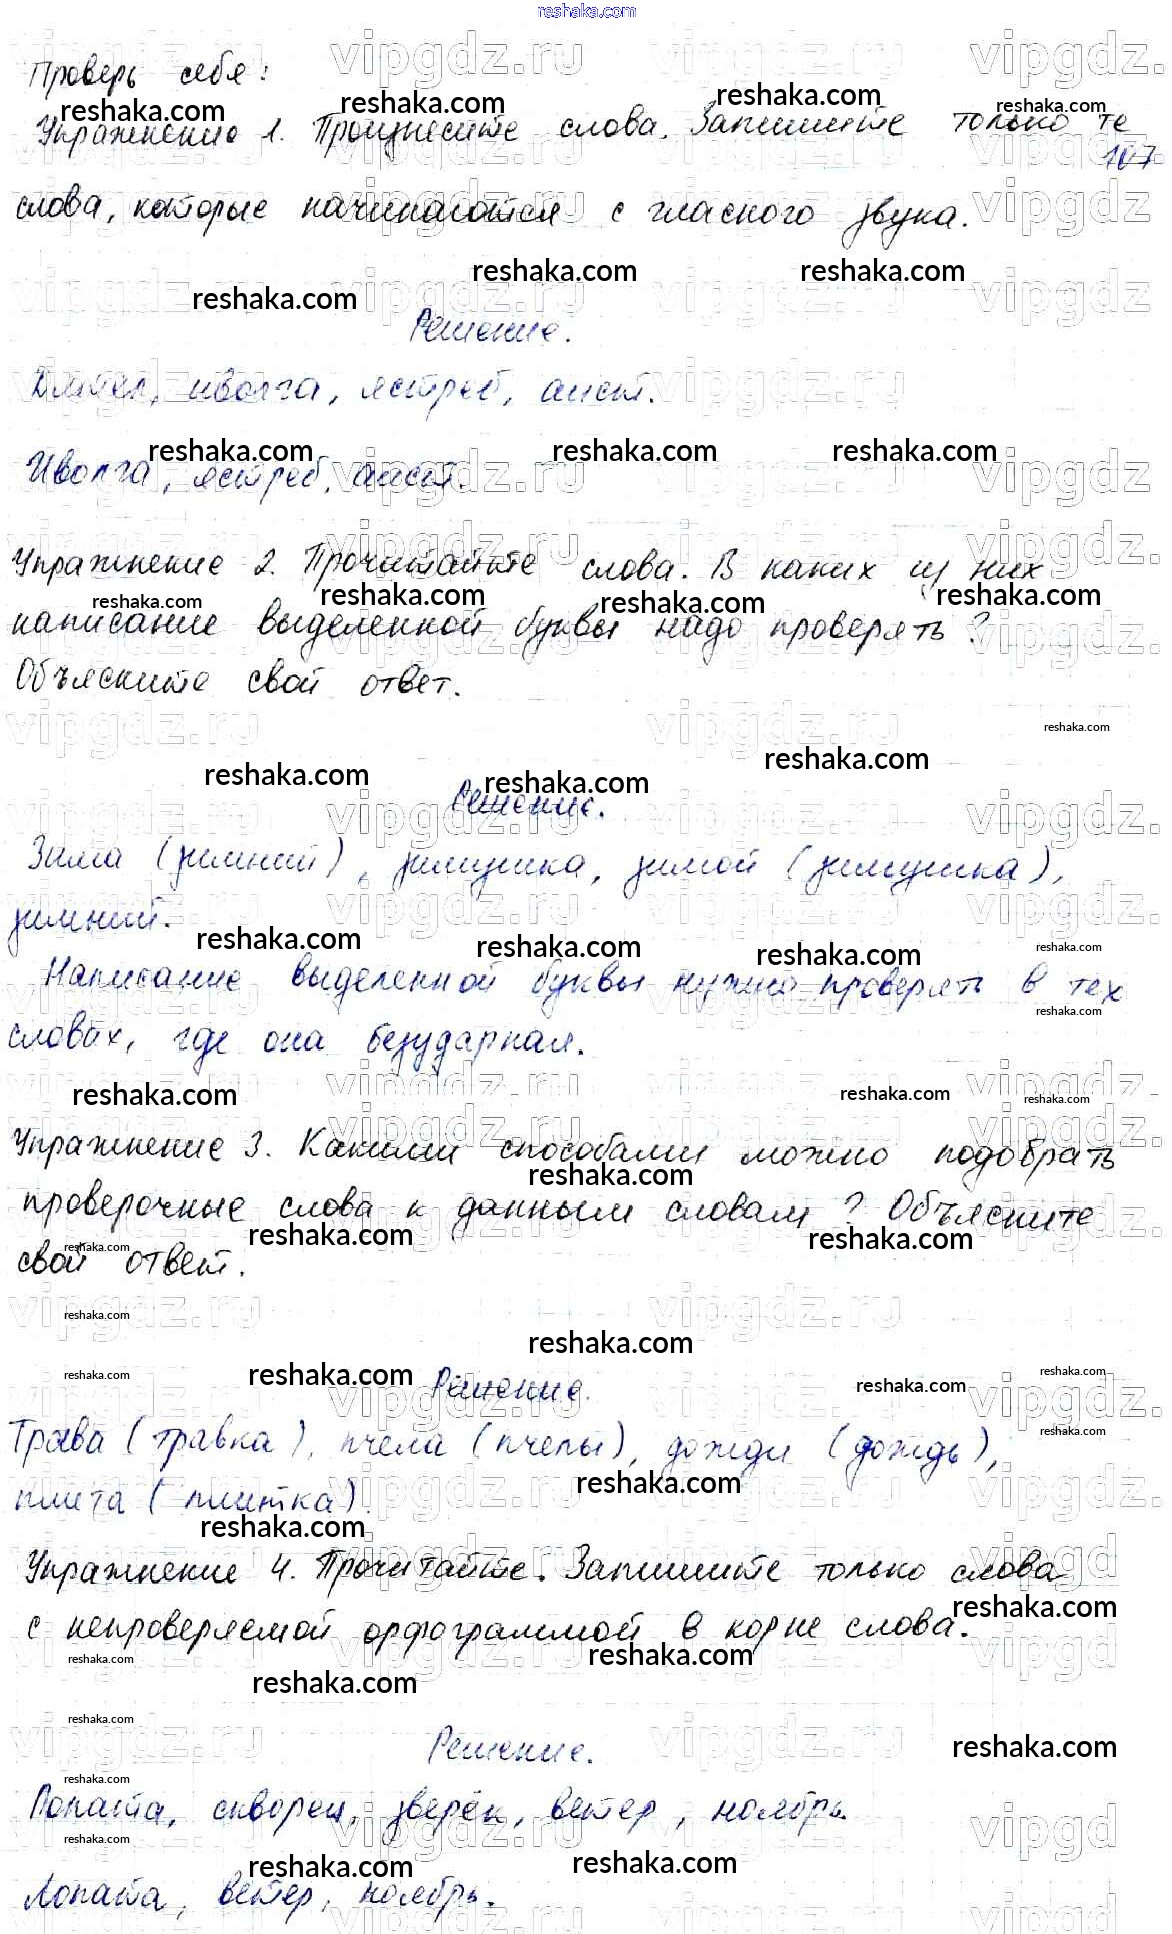 reshaka.com
Проверь себя:
Упражнение 1. Произнесите слова. Запишите только те
107
слова, которые начинаются с гласного звука.
Решение.
Дятел, иволга, ястреб, аист.
Иволга, ястреб, аист.
Упражнение 2. Прочитайте слова. В каких из них
написание выделенной буквы надо проверять?
Объясните свой ответ.
Решение.
Зима (зимний), зимушка, зимой (зимушка),
зимний.
Написание выделенной буквы нужно проверять в тех
словах, где она безударная.
Упражнение 3. Какими способами можно подобрать
проверочные слова к данным словам? Объясните
свой ответ.
Решение.
Трава (травка), пчела (пчелы), дожди (дождь),
плита (плитка).
Упражнение 4. Прочитайте. Запишите только слова
с непроверяемой орфограммой в корне слова.
Решение.
Лопата, скворец, зверёк, ветер, ноябрь.
Лопата, ветер, ноябрь.